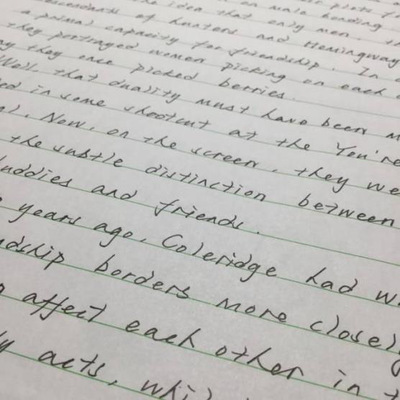 on male bonding
the idea that only men, th
descendants of hunters and Hemingway
a primal capacity for friendship. In
they portrayed women picking on each
they once picked berries.
Well that duality must have been m
in some shootout at the You're
Now, on the screen, they we
the subtle distinction between
buddies and friends.
years ago, Coleridge had w
ndship borders more closely
affect each other in t
ly acts, whi